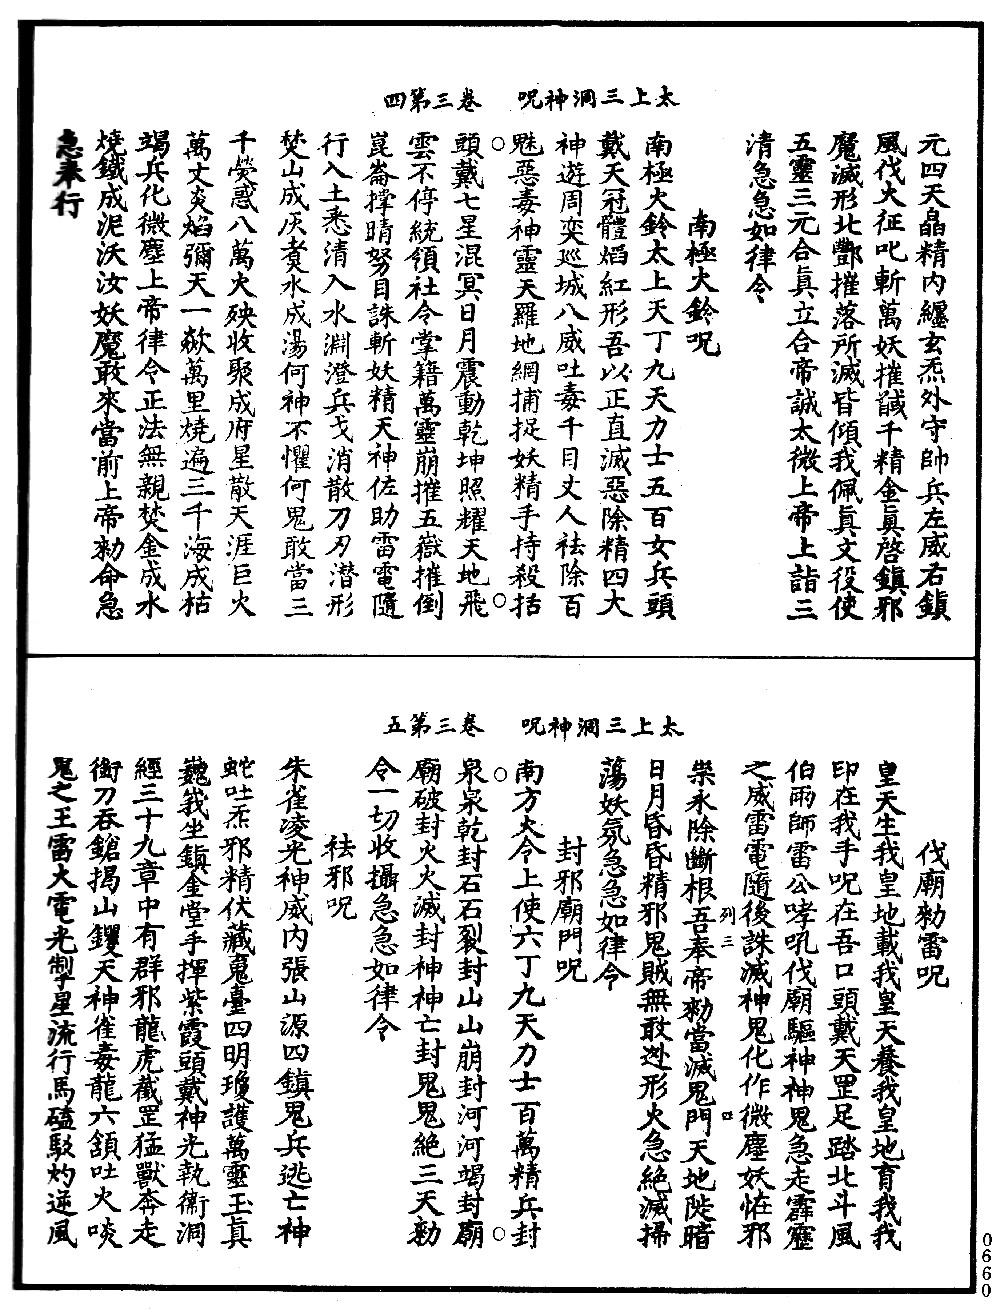 太上三洞神呪　卷三第四
元四天皛精内纏玄炁外守帥兵左威右鎮
風伐火征叱斬萬妖摧馘千精金眞啓鎮邪
魔滅形北酆摧落所滅皆傾我佩眞文役使
五靈三元合眞立合帝誠太微上帝上詣三
清急急如律令
南極火鈴呪
南極火鈴太上天丁九天力士五百女兵頭
戴天冠體焰紅形吾以正直滅惡除精四大
神遊周奕巡城八威吐毒千目丈人袪除百
魅惡毒神靈天羅地網捕捉妖精手持殺括
頭戴七星混冥日月震動乾坤照耀天地飛
雲不停統領社令掌籍萬靈崩摧五嶽摧倒
崑崙撑睛努目誅斬妖精天神佐助雷電隨
行入土悉清入水淵澄兵戈消散刀刃潛形
焚山成灰煑水成湯何神不懼何鬼敢當三
千熒惑八萬火殃收聚成府星散天涯巨火
萬丈炎焰彌天一歘萬里燒遍三千海成枯
竭兵化微塵上帝律令正法無親焚金成水
燒鐵成泥沃汝妖魔敢來當前上帝勑命急
急奉行
太上三洞神呪　卷三第五
伐廟勑雷呪
皇天生我皇地載我皇天養我皇地育我我
印在我手呪在吾口頭戴天罡足踏北斗風
伯雨師雷公哮吼伐廟驅神神鬼急走霹靂
之威雷電隨後誅滅神鬼化作微塵妖怪邪
祟永除斷根吾奉帝勑當滅鬼門天地陡暗
列三
口
日月昏昏精邪鬼賊無敢迯形火急絶滅掃
蕩妖氛急急如律令
封邪廟門呪
南方火令上使六丁九天力士百萬精兵封
泉泉乾封石石裂封山山崩封河河竭封廟
廟破封火火滅封神神亡封鬼鬼絶三天勑
令一切收攝急急如律令
袪邪呪
朱雀凌光神威内張山源四鎮鬼兵逃亡神
蛇吐炁邪精伏藏鬼臺四明瓊護萬靈玉眞
巍峩坐鎮金堂手揮紫霞頭戴神光執衞洞
經三十九章中有群邪龍虎截罡猛獸奔走
銜刀吞鎗揭山钁天神雀毒龍六頷吐火啖
鬼之王雷火電光制星流行馬磕駁灼逆風
0660